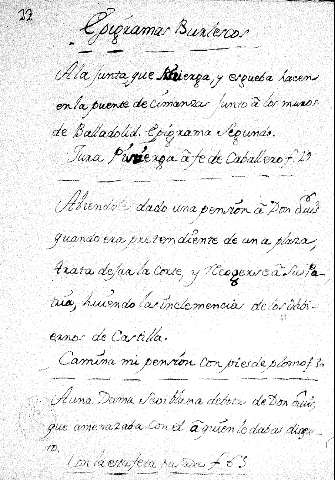 22
Epigramas Burlescos
A la junta que Pisuerga, y esgueba hacen
en la puente de cimanzas junto â los muros
de Balladolid. Epigrama Segundo.
Jura Pisuerga â fe de Caballero f. 29
Abiendole dado una pensión â Don Luis
quando era pretendiente de una plaza,
trata dejar la Corte, y recogerse â su Pa-
tria, huiendo las inclemencias de los imbi-
ernos de Castilla.
Camina mi pensión con pies de plomo f.
A una Dama Sevillana debota de Don Luis,
que amenazaba con el â quien lo daba disgu-
to.
Con la estafeta pasada f. 63